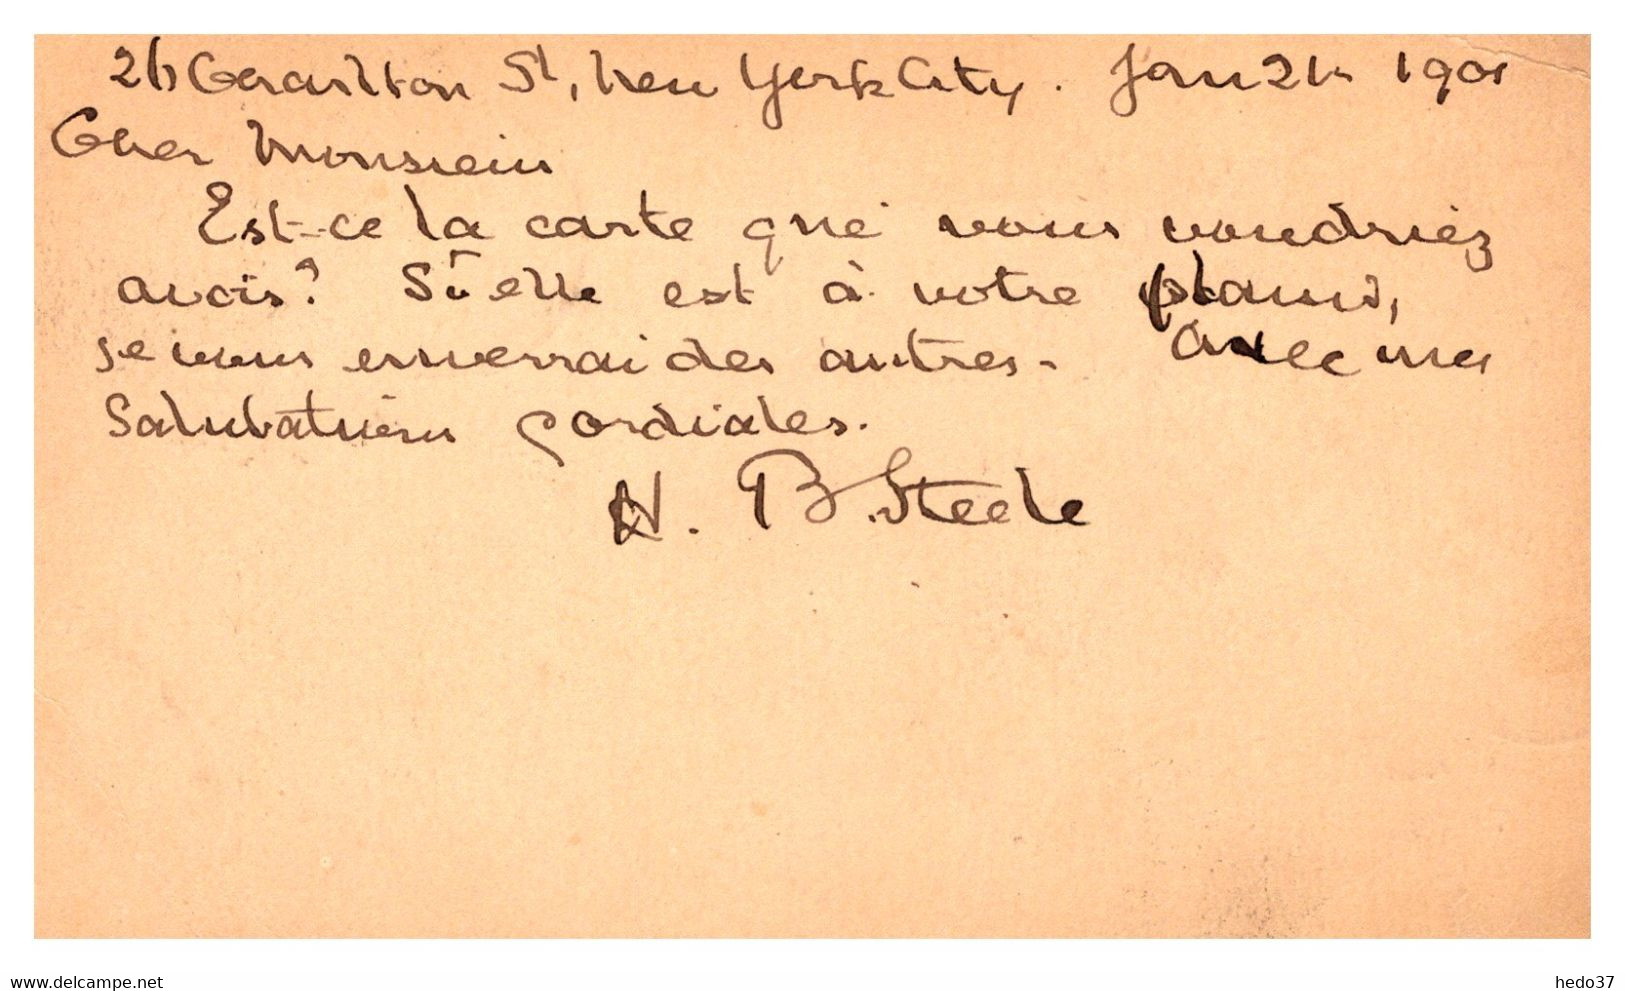 26 Carlton St, New York City. Jan 21st 1901
Cher Monsieur
Est-ce la carte que vous voudriez
avoir? Si elle est à votre plaisir,
je vous enverrai des autres. Avec mes
Salutations cordiales.
N. B. Steele
www.delcampe.net
hedo37